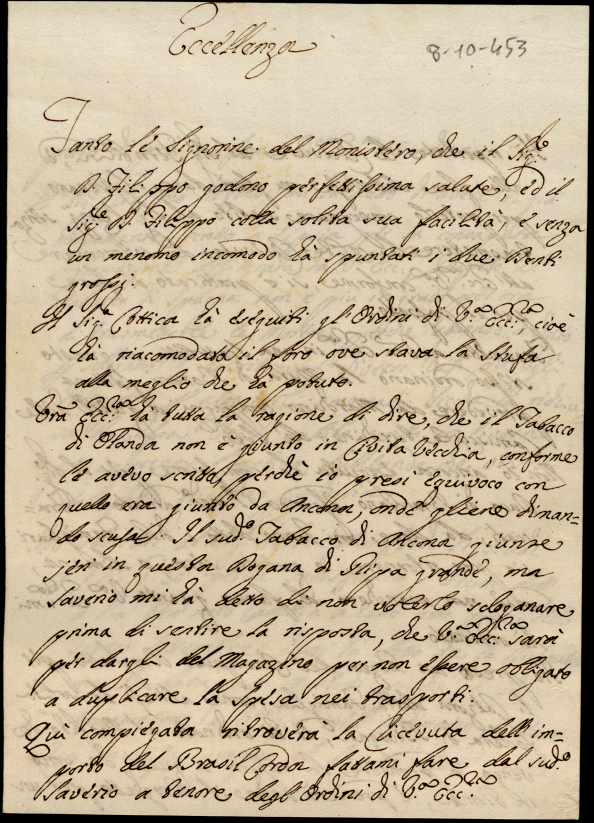 Eccellenza
8-10-453
Tanto le Signorine del Monistero, che il Sig.e
D. Filippo godono perfettissima salute, ed il
Sig.e D. Filippo colla solita sua facilità, e senza
un menomo incomodo hà spuntati i due Denti
grossi.
Il Sig.e Cottica hà eseguiti gl'Ordini di V.a Ecc.za, cioè
hà riacomodato il foro ove stava la stufa
alla meglio che hà potuto.
Vrā Ecc.za hà tutta la ragione di dire, che il Tabacco
di Olanda non è giunto in Civita Vecchia, conforme
le avevo scritto, perchè io presi equivoco con
quello era giunto da Ancona, onde gliene diman-
do scusa. Il sud.o Tabacco di Ancona giunse
jeri in questa Dogana di Ripa grande, ma
Saverio mi hà detto di non volerlo sdoganare
prima di sentire la risposta, che V.a Ecc.za sarà
per dargli del Magazino per non essere obligato
a duplicare la spesa nei trasporti.
Quì compiegata ritroverà la Ricevuta dell'im-
porto del Brasil Cordon fattami fare dal sud.o
Saverio a tenore degl'Ordini di V.a Ecc.za